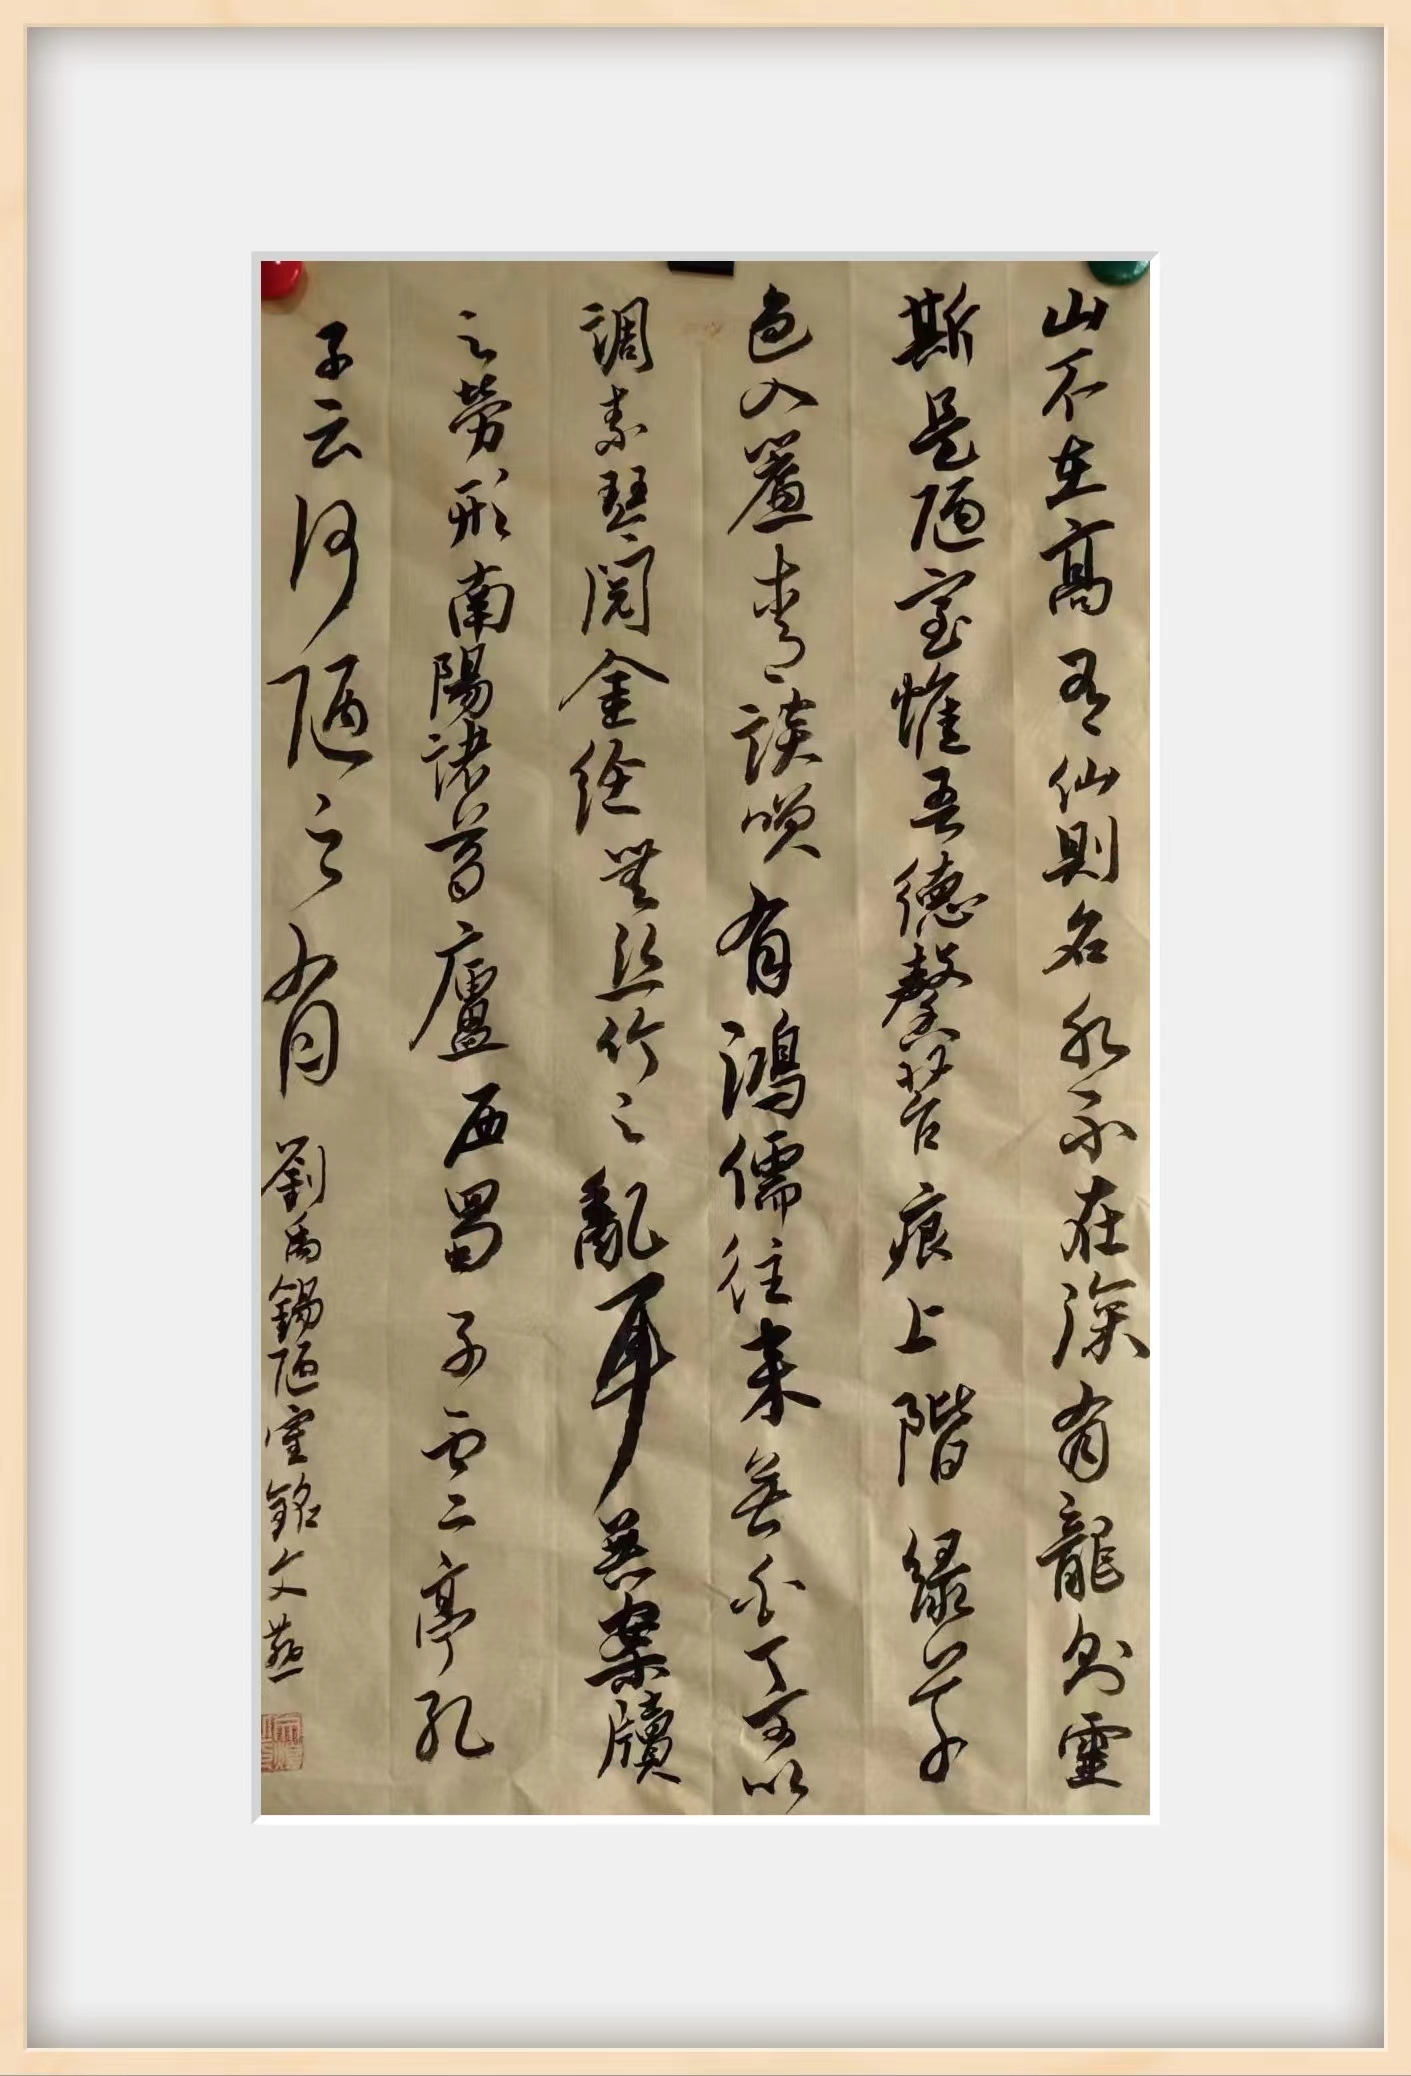 山不在高有仙則名水不在深有龍則靈
斯是陋室惟吾德馨苔痕上階綠草
色入簾青談笑有鴻儒往來無白丁可以
調素琴閱金經無絲竹之亂耳無案牘
之勞形南陽諸葛廬西蜀子雲亭孔
子云何陋之有
劉禹錫陋室銘文